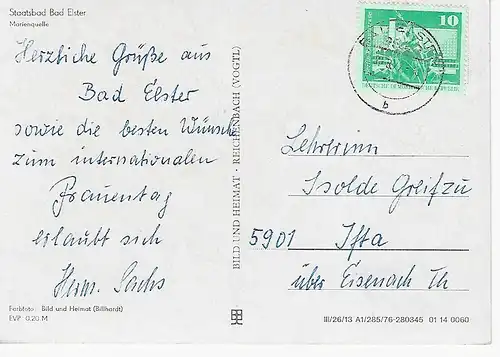 Staatsbad Bad Elster
Marienquelle
Herzliche Grüße aus
Bad Elster
sowie die besten Wünsche
zum internationalen
Frauentag
erlaubt sich
Herm. Sachs
Farbfoto: Bild und Heimat (Billhardt)
EVP 0,20 M
BILD UND HEIMAT · REICHENBACH (VOGTL)
10
DEUTSCHE DEMOKRATISCHE REPUBLIK
b
Lehrerinn
Isolde Greifzu
5901 Ifta
über Eisenach Th
III/26/13 A1/285/76-280345 01 14 0060